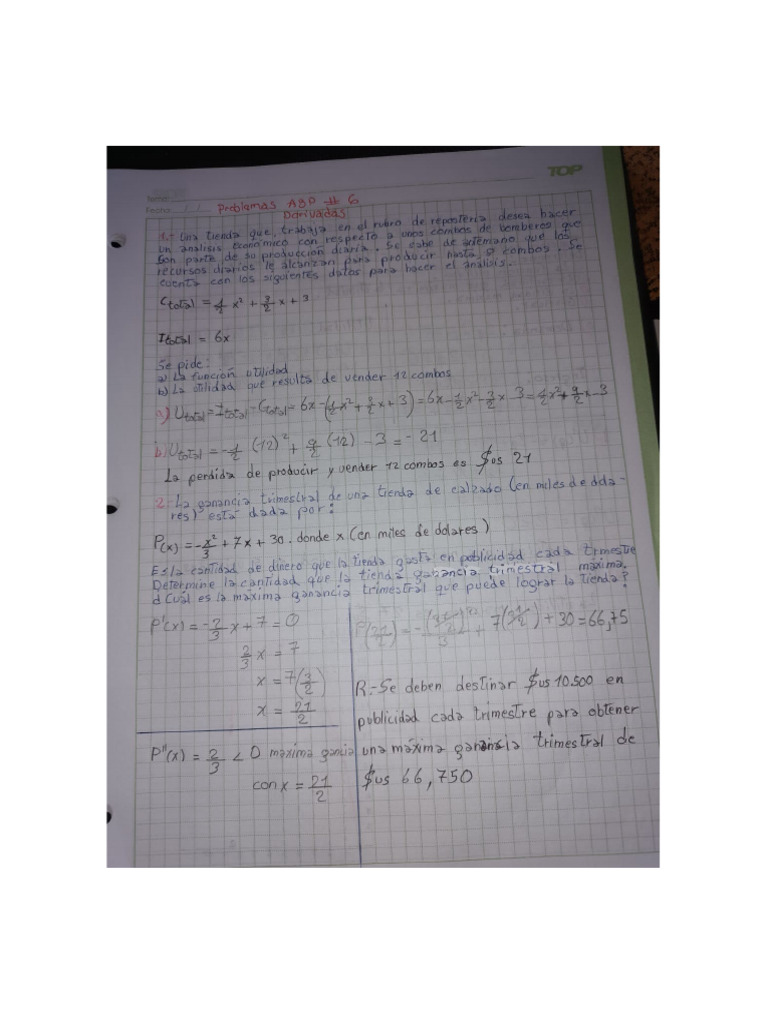 TOP
Tema:
Fecha: / /
Problemas ABP # 6
Darivadas
1.- Una tienda que, trabaja en el rubro de reposteria desea hacer
un analisis económico con respecto a unos combos de bomberos que
son parte de su producción diaria. Se sabe de antemano que los
recursos diarios le alcanzan para producir hasta combos. Se
cuenta con los siguientes datos para hacer el analisis.
Ctotal = 1/2 x² + 3/2 x + 3
Itotal = 6x
Se pide:
a) La función utilidad
b) La utilidad que resulta de vender 12 combos
a) Utotal = Itotal - Ctotal = 6x - (1/2 x² + 3/2 x + 3) = 6x - 1/2 x² - 3/2 x 3 = 1/2 x² + 9/2 x - 3
b) Utotal = -1/2 (12)² + 9/2 (12) - 3 = - 21
La perdida de producir y vender 12 combos es $us 21
2.- La ganancia trimestral de una tienda de calzado (en miles de dola-
res) está dada por:
P(x) = -x²/3 + 7x + 30. donde x (en miles de dolares)
Es la cantidad de dinero que la tienda gasta en publicidad cada trmestre
Determine la cantidad que la tienda ganancia trimestral maxima.
¿Cuál es la maxima ganancia trimestral que puede lograr la tienda?
P'(x) = -2/3 x + 7 = 0
2/3 x = 7
x = 7 (3/2)
x = 21/2
P''(x) = 2/3 < 0 maxima gancia
con x = 21/2
P(21/2) = - /3 + 7(21/2) + 30 = 66,75
R.- Se deben destinar $us 10.500 en
publicidad cada trimestre para obtener
una máxima ganancia trimestral de
$us 66,750